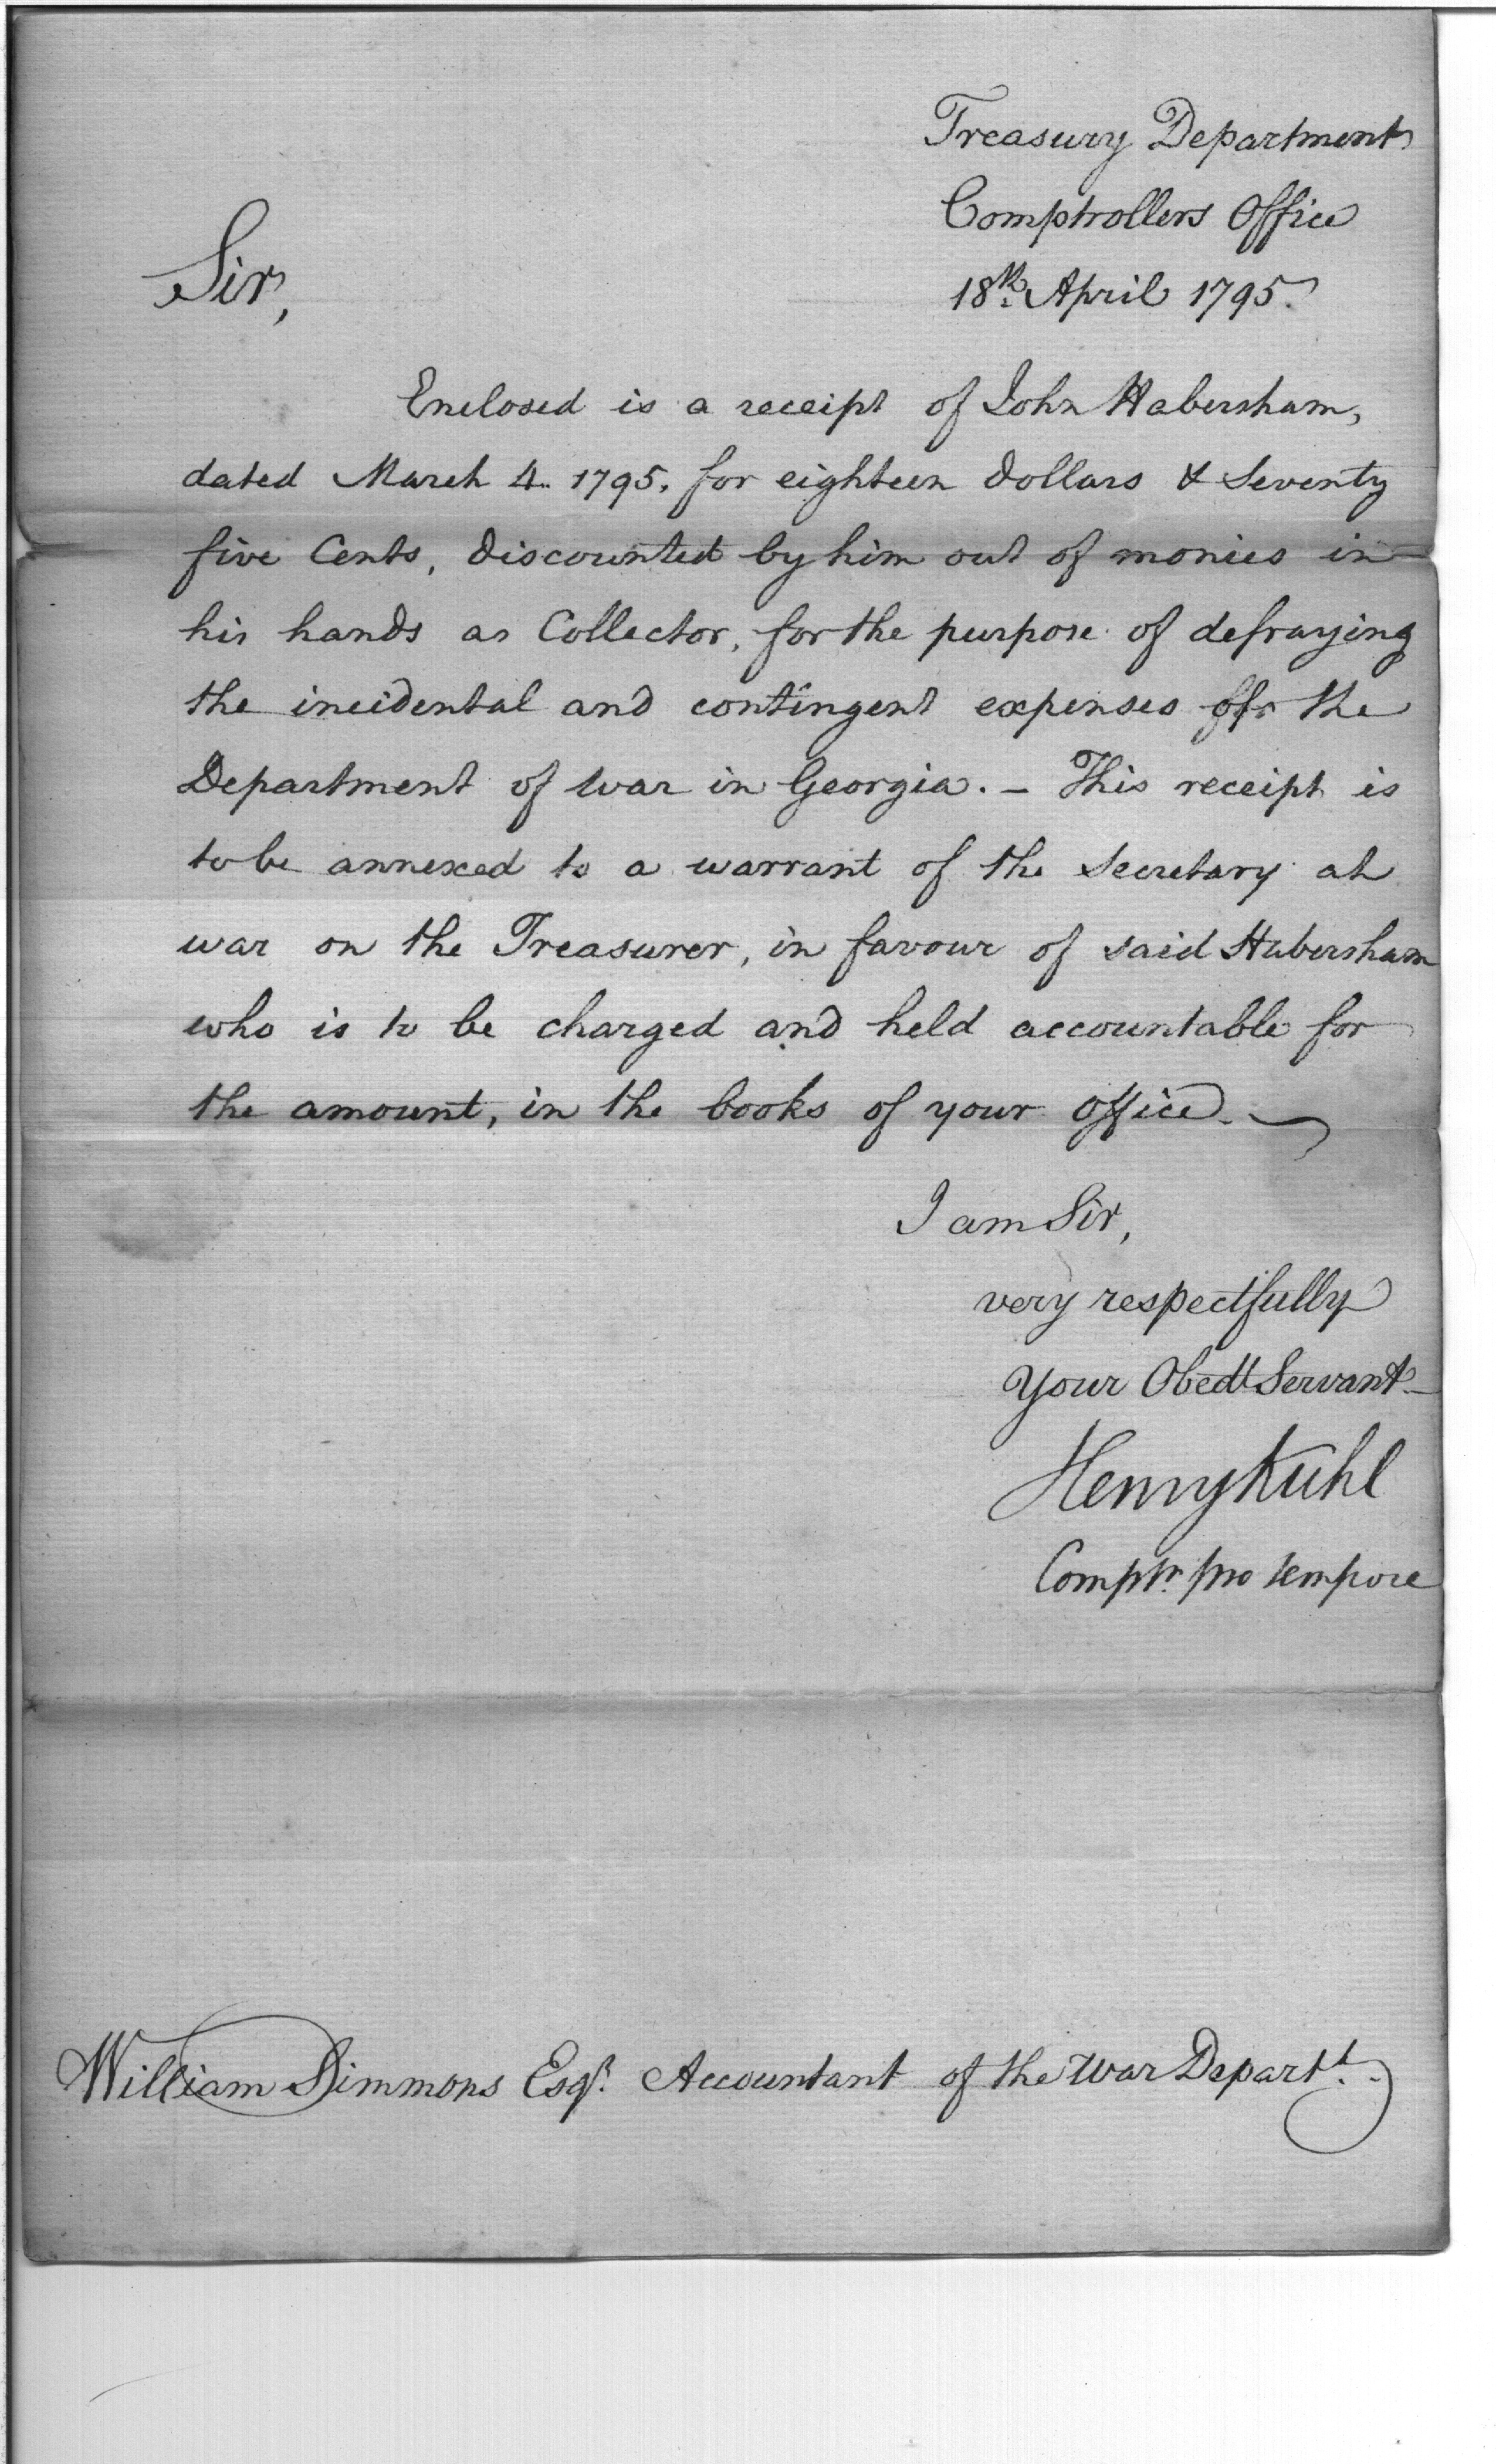 Treasury Department
Comptrollers Office
18th. April 1795.
Sir,
Enclosed is a receipt of John Habersham,
dated March 4. 1795, for eighteen dollars & Seventy
five Cents, discounted by him out of monies in
his hands as Collector, for the purpose of defraying
the incidental and contingent expenses of the
Department of war in Georgia. – This receipt is
to be annexed to a warrant of the Secretary at
war on the Treasurer, in favour of said Habersham
who is to be charged and held accountable for
the amount, in the books of your office.
I am Sir,
very respectfully
your Obedt Servant
Henry Kuhl
Comptr. pro tempore
William Simmons Esqr. Accountant of the War Depart.t